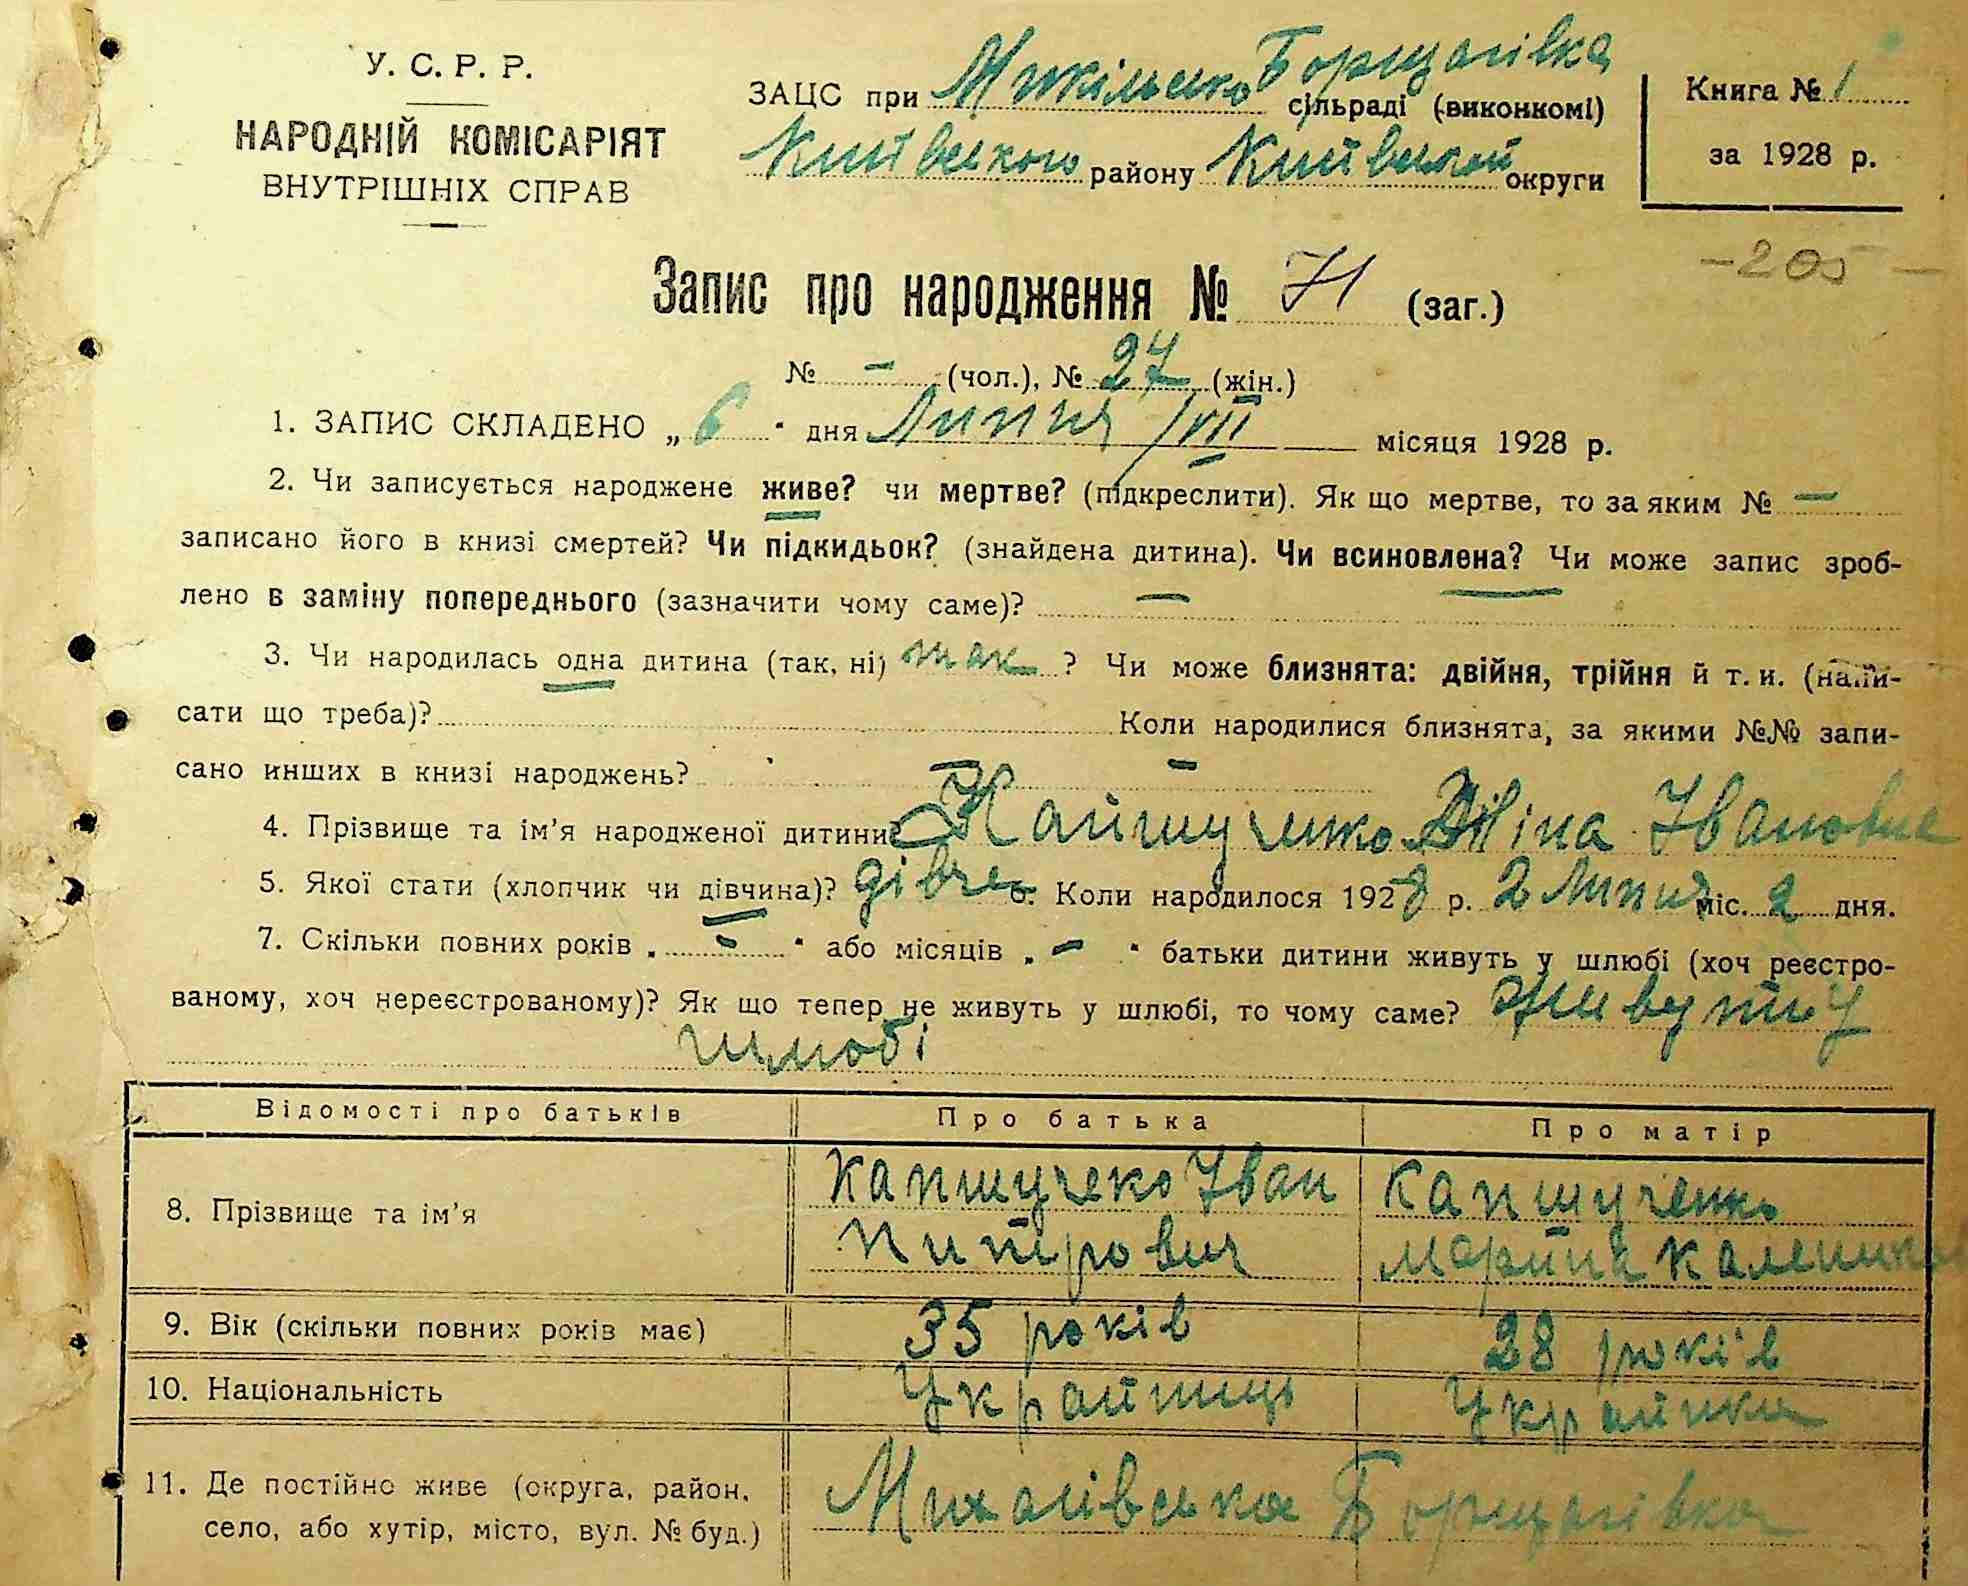 У. С. Р. Р.
НАРОДНІЙ КОМІСАРІЯТ
ВНУТРІШНІХ СПРАВ
ЗАЦС при Микільсько Борщагівка сільраді (виконкомі)
Київського району Київської округи
Книга № 1
за 1928 р.
- 205 -
Запис про народження № 71 (заг.)
№ — (чол.), № 27 (жін.)
1. ЗАПИС СКЛАДЕНО „ 6 " дня Липня /VII місяця 1928 р.
2. Чи записується народжене живе? чи мертве? (підкреслити). Як що мертве, то за яким № —
записано його в книзі смертей? Чи підкидьок? (знайдена дитина). Чи всиновлена? Чи може запис зроб-
лено в заміну попереднього (зазначити чому саме)? —
3. Чи народилась одна дитина (так, ні) так ? Чи може близнята: двійня, трійня й т. и. (напи-
сати що треба)? Коли народилися близнята, за якими №№ запи-
сано инших в книзі народжень? —
4. Прізвище та ім'я народженої дитини Капшученко Ніна Івановна
5. Якої стати (хлопчик чи дівчина)? дівче Коли народилося 1928 р. 2 Липня міс. 2 дня.
7. Скільки повних років „ - " або місяців „ - " батьки дитини живуть у шлюбі (хоч реєстро-
ваному, хоч нереєстрованому)? Як що тепер не живуть у шлюбі, то чому саме? живуть у
шлюбі
Відомості про батьків Про батька Про матір
8. Прізвище та ім'я Капшученко Іван Капшученко
Питрович Марина
9. Вік (скільки повних років має) 35 років 28 років
10. Національність Українець Українка
11. Де постійно живе (округа, район, Михайлівська Борщагівка
село, або хутір, місто, вул. № буд.)